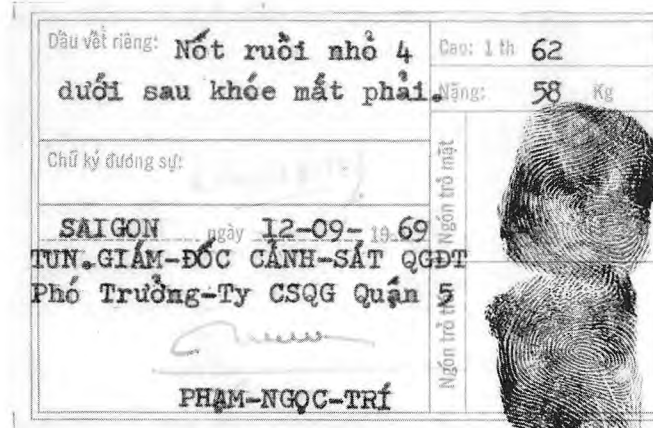 Dấu vết riêng: Nốt ruồi nhỏ 4
dưới sau khóe mắt phải.
Cao: 1 th 62
Nặng: 58 Kg
Chữ ký đương sự:
SAIGON ngày 12-09- 19 69
TUN.GIÁM-ĐỐC CẢNH-SÁT QGĐT
Phó Trưởng-Ty CSQG Quận 5
PHẠM-NGỌC-TRÍ
Ngón trỏ mặt
Ngón trỏ